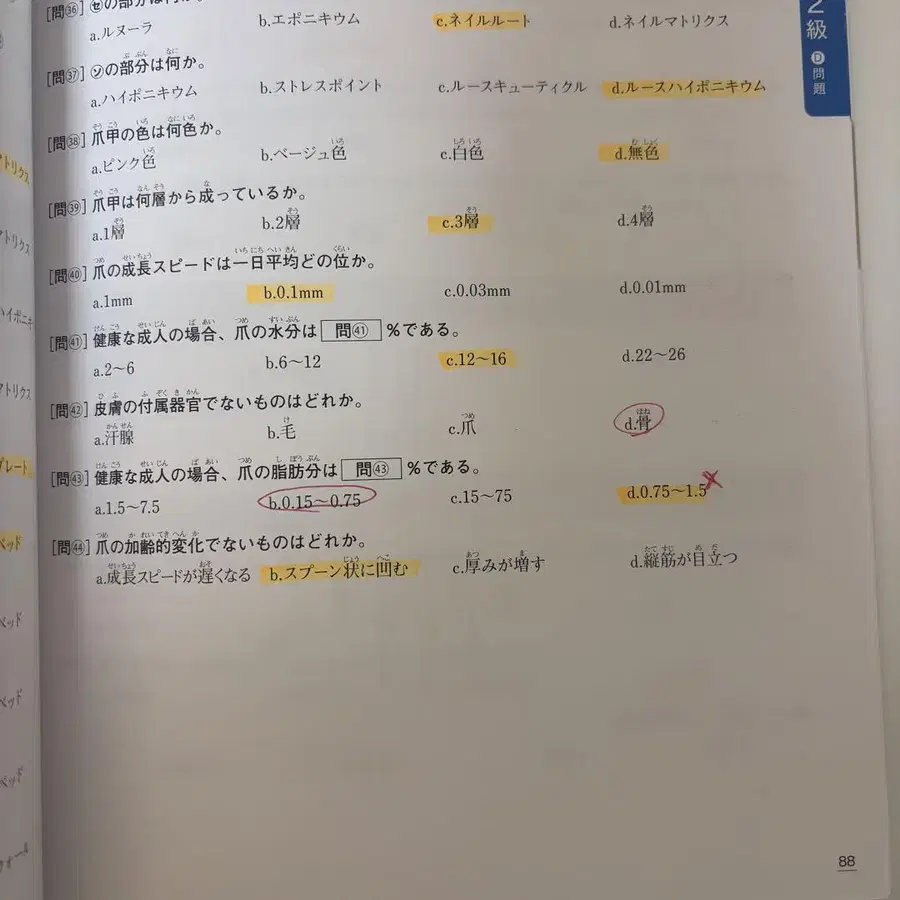 [問㊱] ㋝の部分は何か。
a.ルヌーラ b.エポニキウム c.ネイルルート d.ネイルマトリクス
[問㊲] ㋞の部分は何か。
a.ハイポニキウム b.ストレスポイント c.ルースキューティクル d.ルースハイポニキウム
[問㊳] 爪甲の色は何色か。
a.ピンク色 b.ベージュ色 c.白色 d.無色
[問㊴] 爪甲は何層から成っているか。
a.1層 b.2層 c.3層 d.4層
[問㊵] 爪の成長スピードは一日平均どの位か。
a.1mm b.0.1mm c.0.03mm d.0.01mm
[問㊶] 健康な成人の場合、爪の水分は 問㊶ %である。
a.2～6 b.6～12 c.12～16 d.22～26
[問㊷] 皮膚の付属器官でないものはどれか。
a.汗腺 b.毛 c.爪 d.骨
[問㊸] 健康な成人の場合、爪の脂肪分は 問㊸ %である。
a.1.5～7.5 b.0.15～0.75 c.15～75 d.0.75～1.5
[問㊹] 爪の加齢的変化でないものはどれか。
a.成長スピードが遅くなる b.スプーン状に凹む c.厚みが増す d.縦筋が目立つ
2級
D問題
88